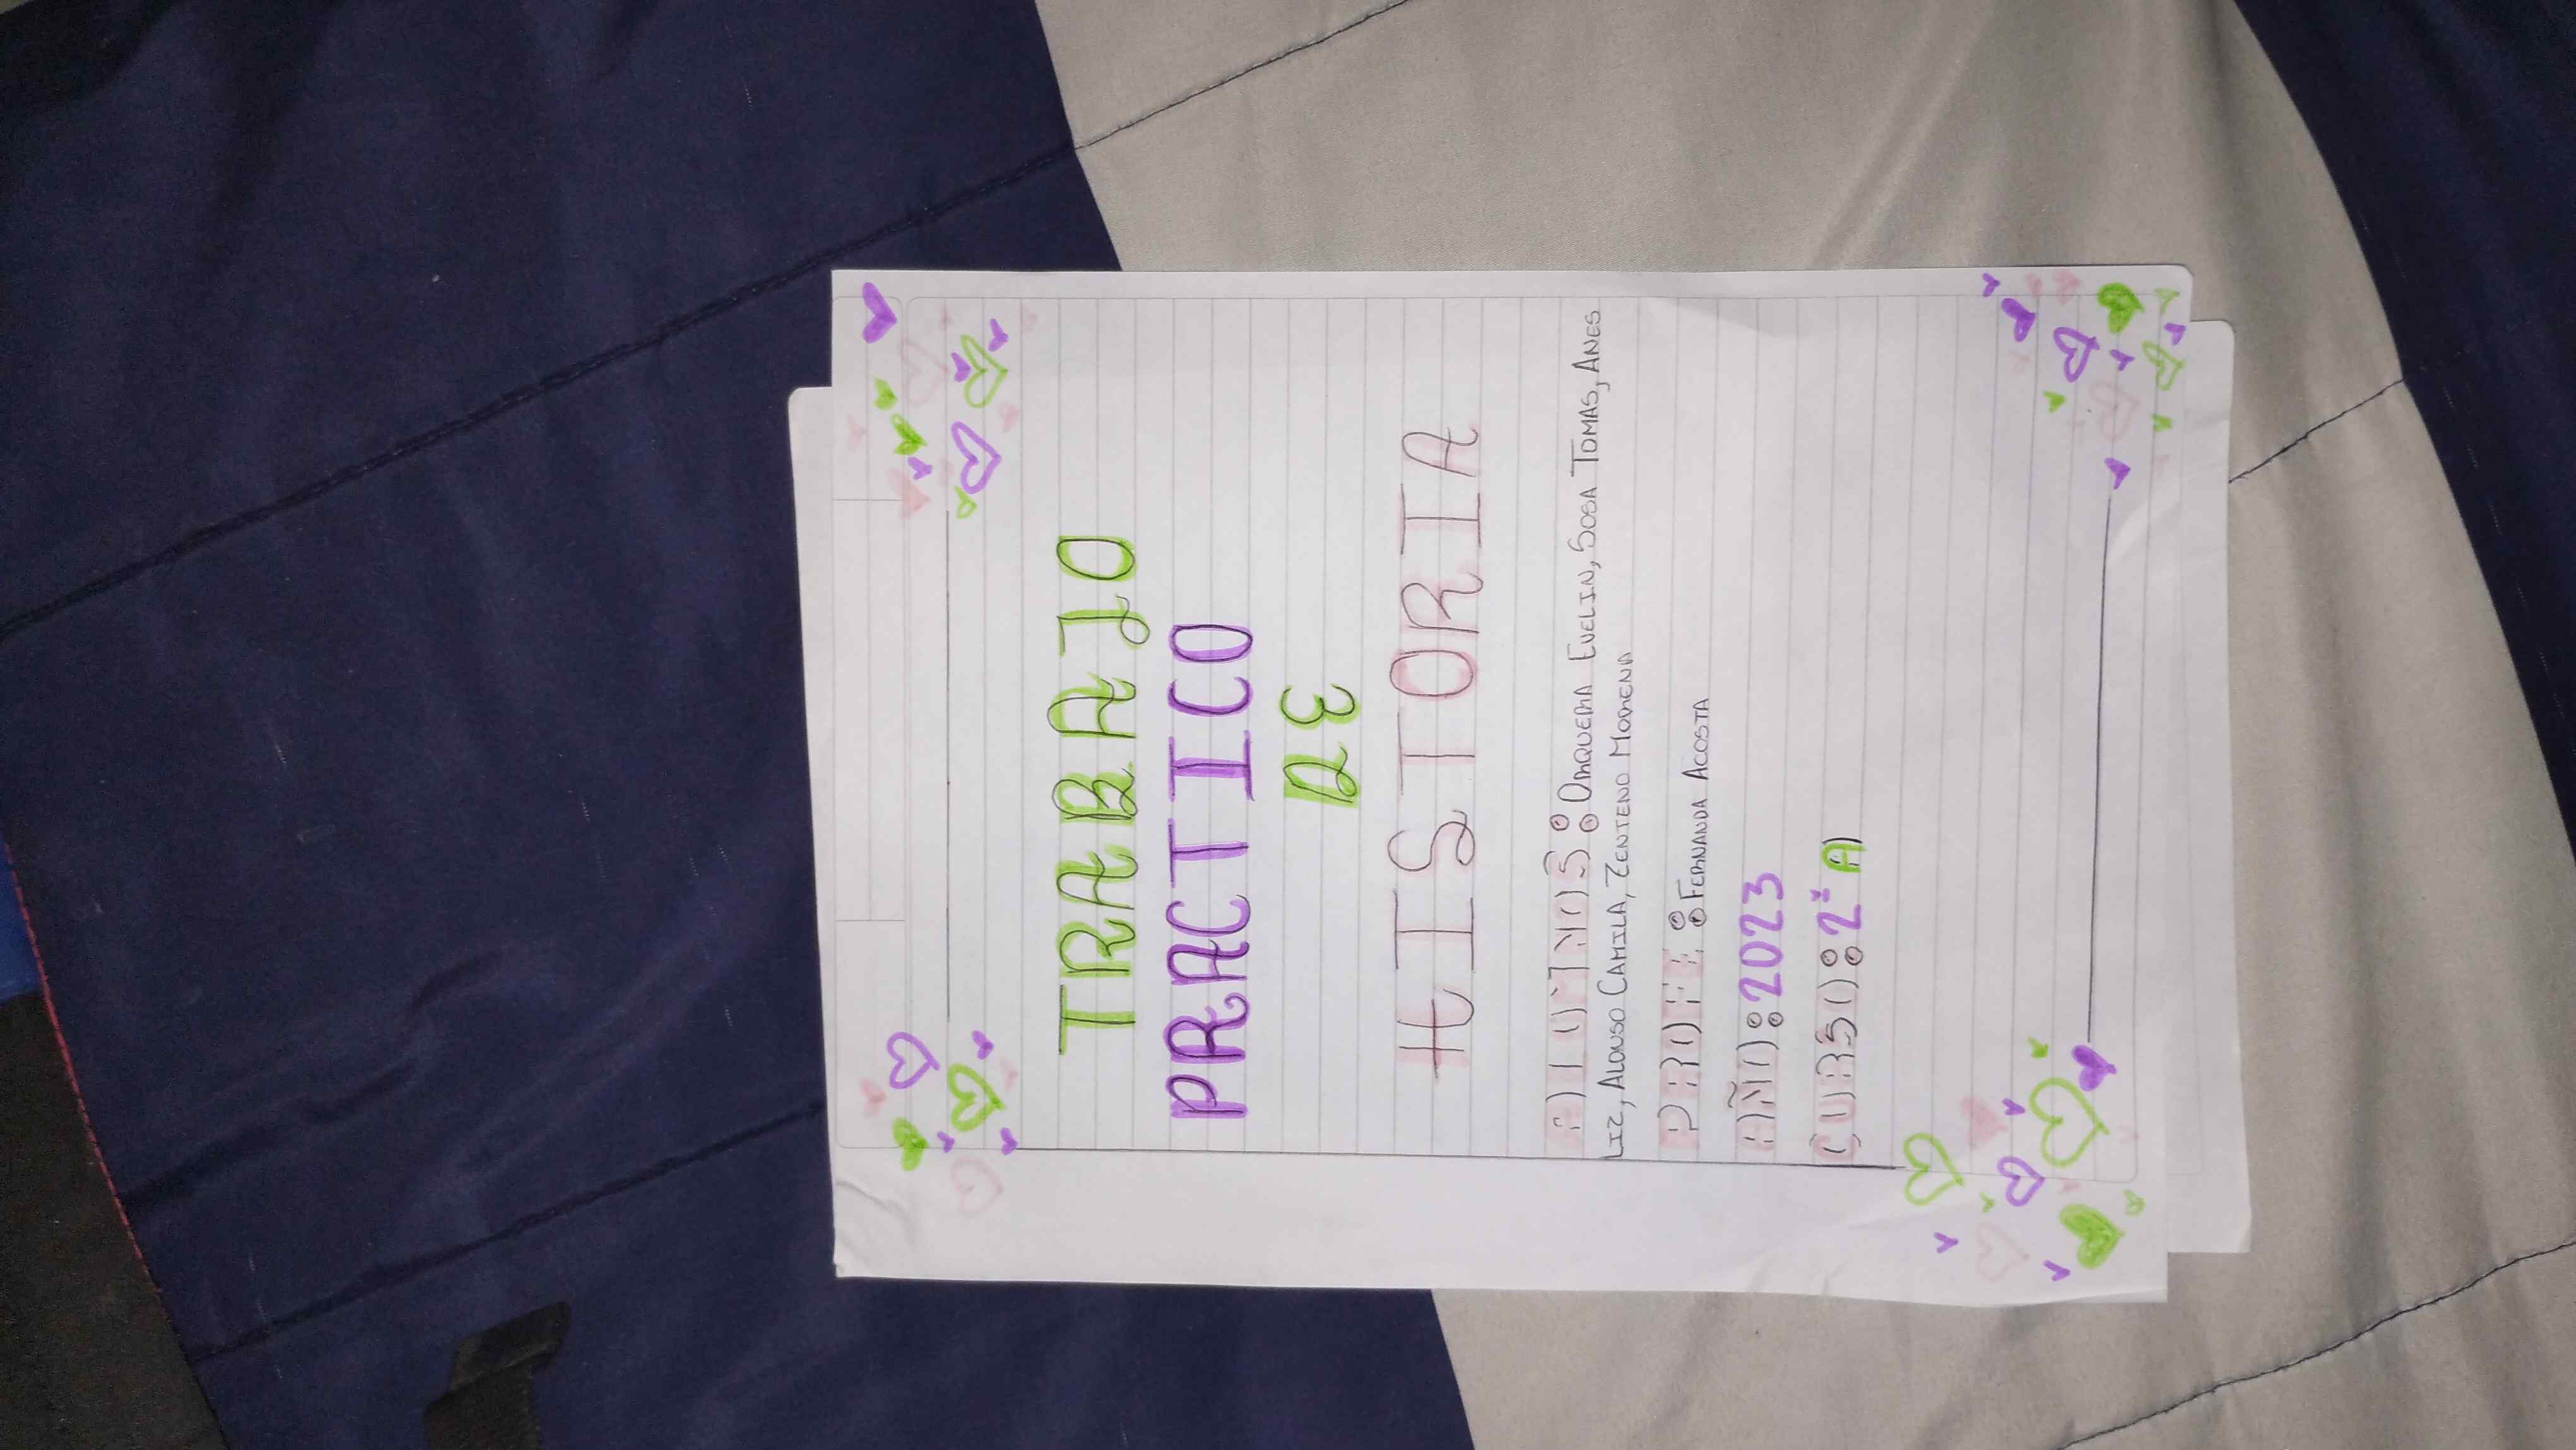 TRABAJO
PRACTICO
DE
HISTORIA
ALUMNOS: ORQUERA EVELIN, SOSA TOMAS, ANES
LIZ, ALONSO CAMILA, ZENTENO MORENA
PROFE: FERNANDA ACOSTA
AÑO: 2023
CURSO: 2° A